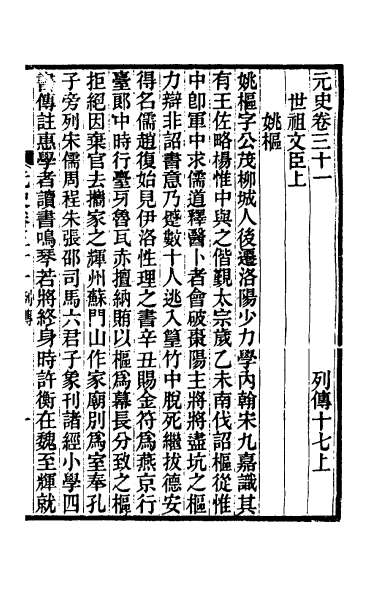 元史卷三十一　列傳十七上
世祖文臣上
姚樞
姚樞字公茂柳城人後遷洛陽少力學內翰宋九嘉識其
有王佐略楊惟中與之偕覲太宗歲乙未南伐詔樞從惟
中卽軍中求儒道釋醫卜者會破棗陽主將將盡坑之樞
力辯非詔書意乃蹙數十人逃入篁竹中脫死繼拔德安
得名儒趙復始見伊洛性理之書辛丑賜金符爲燕京行
臺郞中時行臺牙魯瓦赤擅納賄以樞爲幕長分致之樞
拒絕因棄官去攜家之輝州蘇門山作家廟別爲室奉孔
子旁列宋儒周程朱張邵司馬六君子象刊諸經小學四
書傳註惠學者讀書鳴琴若將終身時許衡在魏至輝就